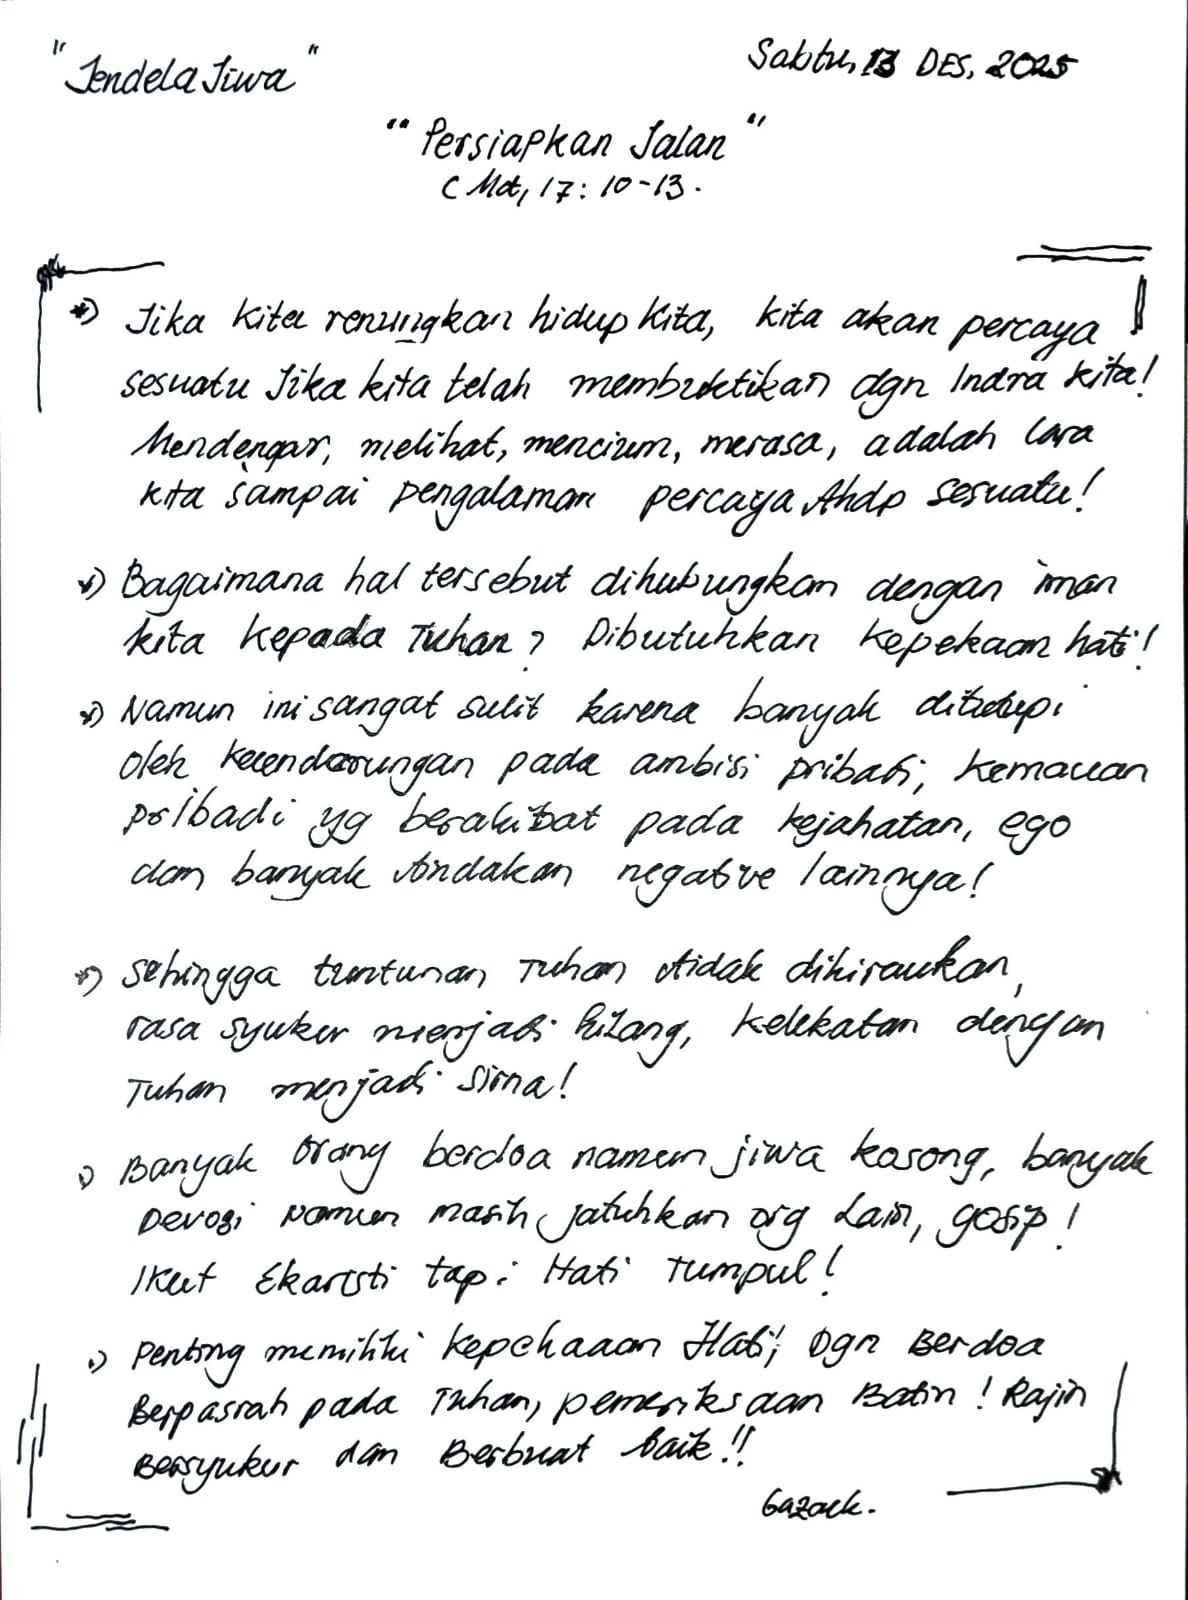 "Jendela Jiwa"
Sabtu, 13 DES, 2025
"Persiapkan Jalan"
( Mat, 17: 10-13.
*) Jika kita renungkan hidup kita, kita akan percaya
sesuatu Jika kita telah membuktikan dgn Indra kita!
Mendengar, melihat, mencium, merasa, adalah cara
kita sampai pengalaman percaya thdp sesuatu!
*) Bagaimana hal tersebut dihubungkan dengan iman
kita kepada Tuhan? Dibutuhkan kepekaan hati!
*) Namun ini sangat sulit karena banyak ditutupi
oleh kecenderungan pada ambisi pribadi, kemauan
pribadi yg berakibat pada kejahatan, ego
dan banyak tindakan negative lainnya!
*) Sehingga tuntunan Tuhan tidak dihiraukan,
rasa syukur menjadi hilang, kelekatan dengan
Tuhan menjadi sirna!
*) Banyak orang berdoa namun jiwa kosong, banyak
Devosi namun masih jatuhkan org Lain, gosip!
Ikut Ekaristi tapi Hati Tumpul!
*) Penting memiliki kepekaaan Hati, Dgn Berdoa
Berpasrah pada Tuhan, pemeriksaan Batin! Rajin
Bersyukur dan Berbuat baik!!
Gazack.